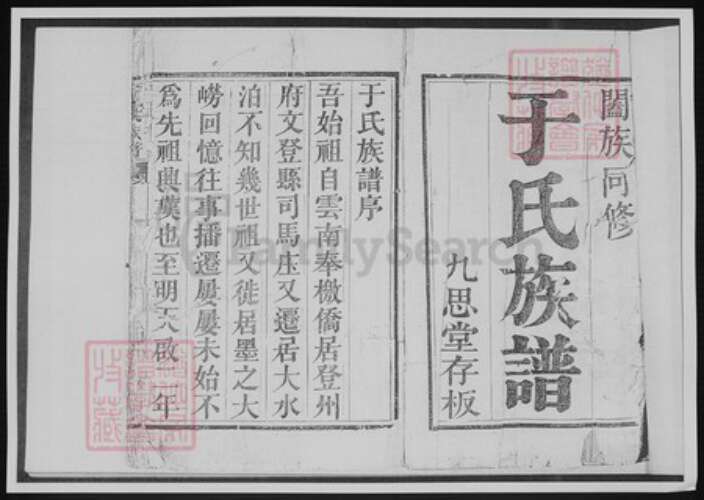 闔族同修
于氏族譜
九思堂存板
于氏族譜序
吾始祖自雲南奉檄僑居登州
府文登縣司馬庄又遷居大水
泊不知幾世祖又徙居墨之大
嶗回憶往事播遷屢屢未始不
為先祖興嘆也至明天啟二年
FamilySearch